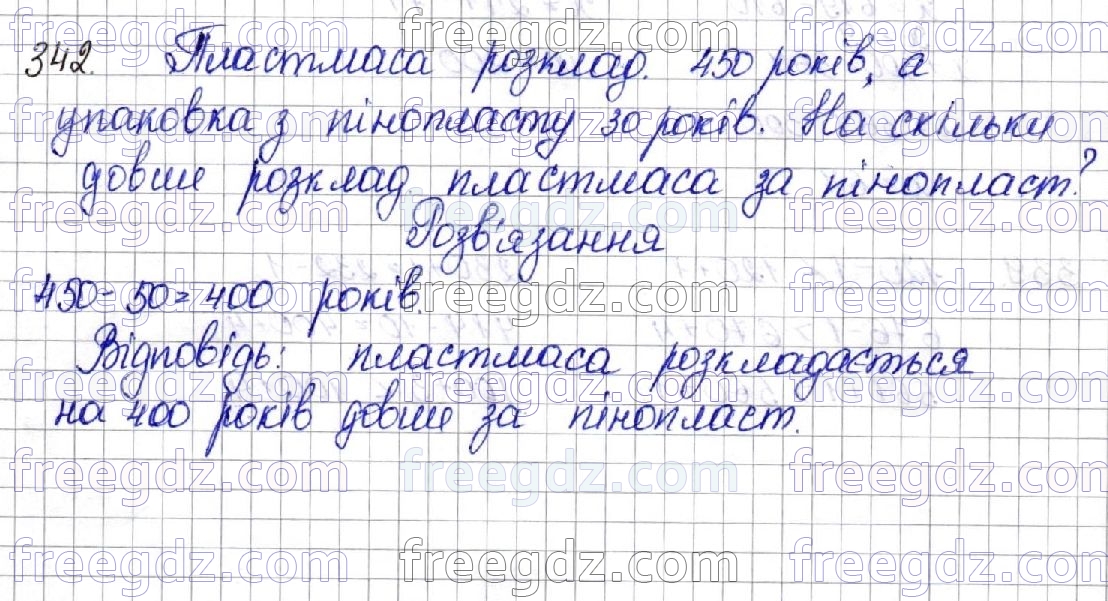 342. Пластмаса розклад. 450 років, а
упаковка з пінопласту 30 років. На скільки
довше розклад. пластмаса за пінопласт?
Розв'язання
450 - 50 = 400 років.
Відповідь: пластмаса розкладається
на 400 років довше за пінопласт.
freegdz.com